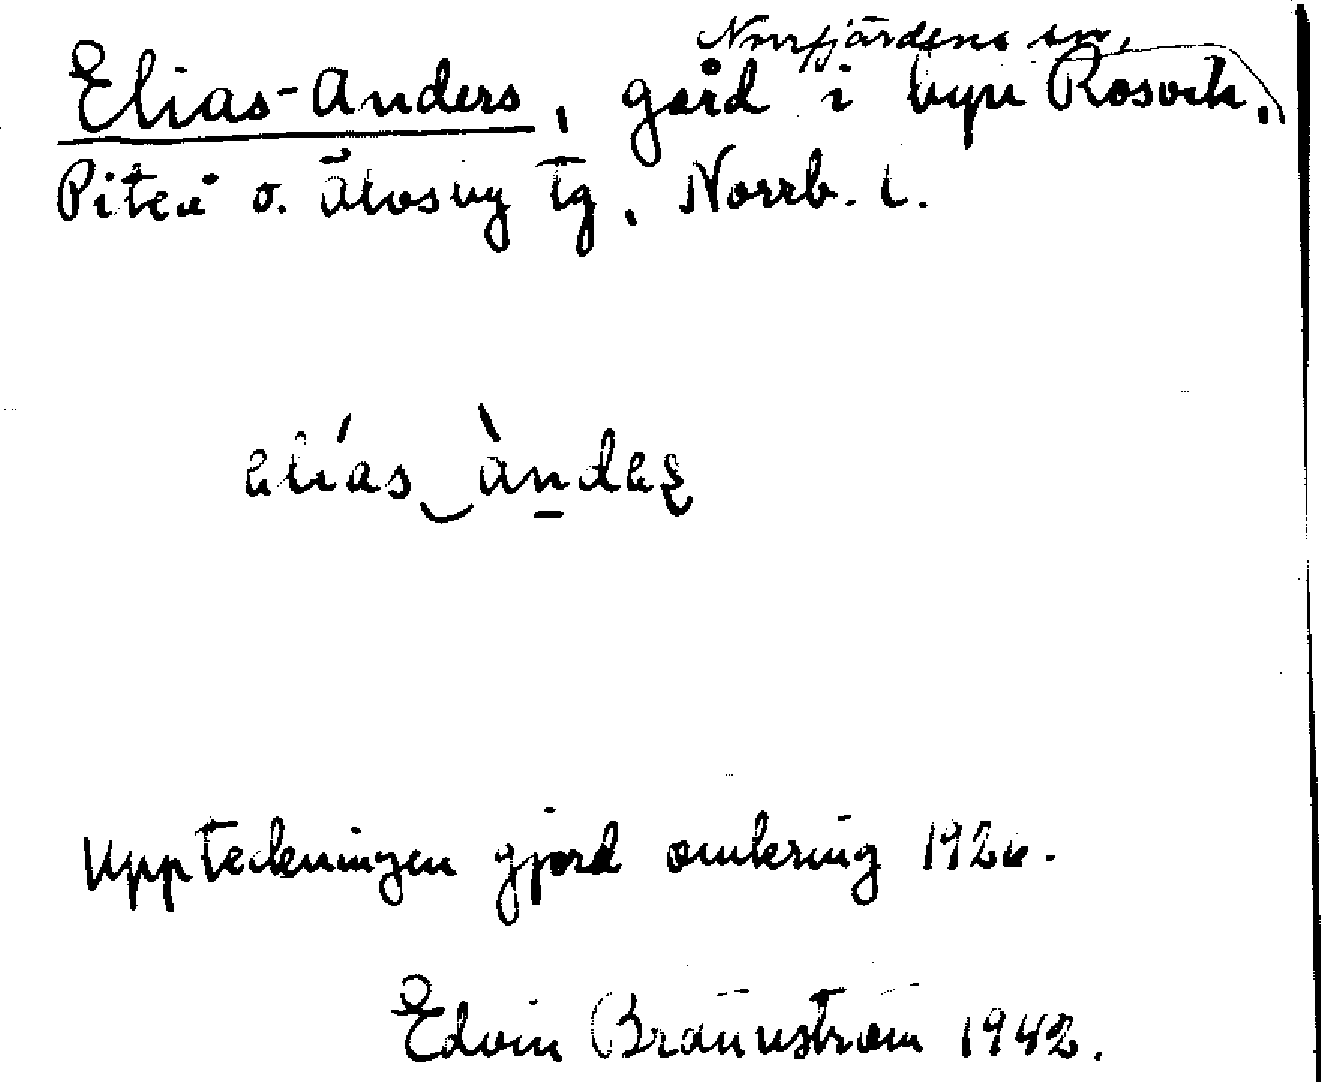 Norrfjärdens sn,
Elias-Anders, gård i byn Rosvik.
Piteå o. Älvsby tg, Norrb. l.
elías àndeʂ
Uppteckningen gjord omkring
Edvin Brännström 1942.